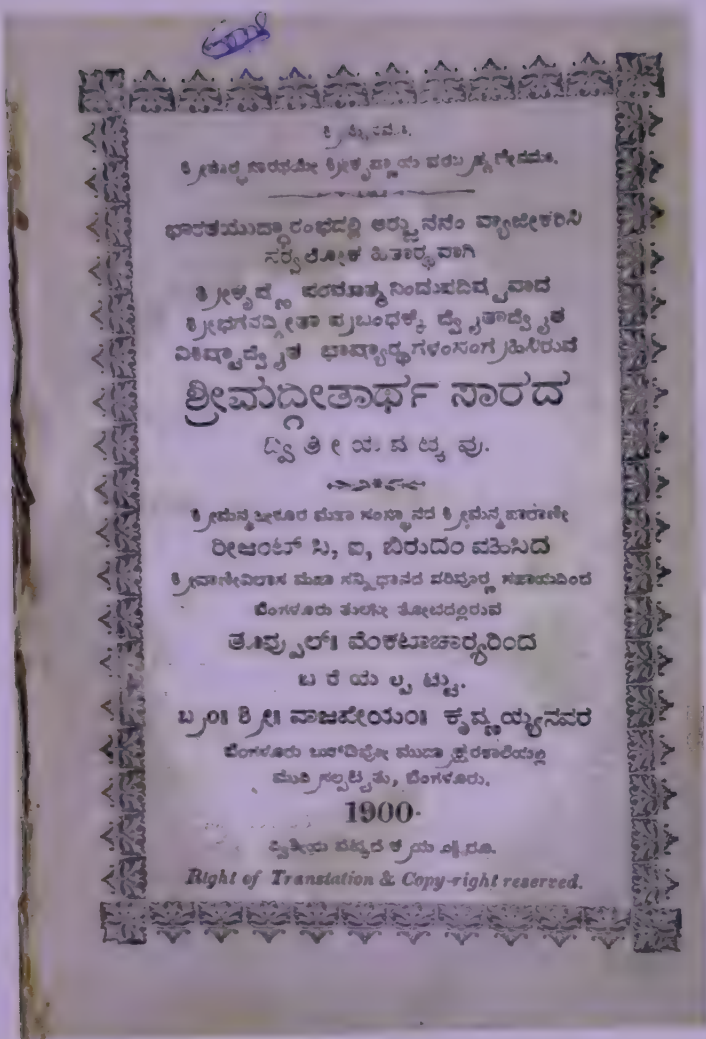 ಶ್ರೀಮತೇನಮಃ.
ಶ್ರೀಪಾರ್ಥಸಾರಥಯೇ ಶ್ರೀಕೃಷ್ಣಾಯ ಪರಬ್ರಹ್ಮಣೇನಮಃ.
ಭಾರತಯುದ್ಧಾರಂಭದಲ್ಲಿ ಅರ್ಜ್ಜುನನಂ ವ್ಯಾಜೀಕರಿಸಿ
ಸರ್ವಲೋಕ ಹಿತಾರ್ಥವಾಗಿ
ಶ್ರೀಕೃಷ್ಣ ಪರಮಾತ್ಮನಿಂದುಪದಿಷ್ಟವಾದ
ಶ್ರೀಭಗವದ್ಗೀತಾ ಪ್ರಬಂಧಕ್ಕೆ ದ್ವೈತಾದ್ವೈತ
ವಿಶಿಷ್ಟಾದ್ವೈತ ಭಾಷ್ಯಾರ್ಥಗಳಂಸಂಗ್ರಹಿಸಿರುವ
ಶ್ರೀಮದ್ಗೀತಾರ್ಥ ಸಾರದ
ದ್ವಿತೀಯಷಟ್ಕವು.
ಶ್ರೀಮನ್ಮಹೀಶೂರ ಮಹಾ ಸಂಸ್ಥಾನದ ಶ್ರೀಮನ್ಮಹಾರಾಣೀ
ರೀಜಂಟ್ ಸಿ, ಐ, ಬಿರುದಂ ವಹಿಸಿದ
ಶ್ರೀವಾಣೀವಿಲಾಸ ಮಹಾ ಸನ್ನಿಧಾನದ ಪರಿಪೂರ್ಣ ಸಹಾಯದಿಂದ
ಬೆಂಗಳೂರು ತುಲಸೀ ತೋಟದಲ್ಲಿರುವ
ತೂಪ್ಪುಲ್॥ ವೆಂಕಟಾಚಾರ್ಯರಿಂದ
ಬರೆಯಲ್ಪಟ್ಟು.
ಬ್ರಂ॥ ಶ್ರೀ॥ ವಾಜಪೇಯಂ॥ ಕೃಷ್ಣಯ್ಯನವರ
ಬೆಂಗಳೂರು ಬುಕ್‌ಡಿಪೋ ಮುದ್ರಾಕ್ಷರಶಾಲೆಯಲ್ಲಿ
ಮುದ್ರಿಸಲ್ಪಟ್ಟಿತು, ಬೆಂಗಳೂರು.
1900.
ದ್ವಿತೀಯ ಷಟ್ಕದ ಕ್ರಯ
Right of Translation & Copy-right reserved.